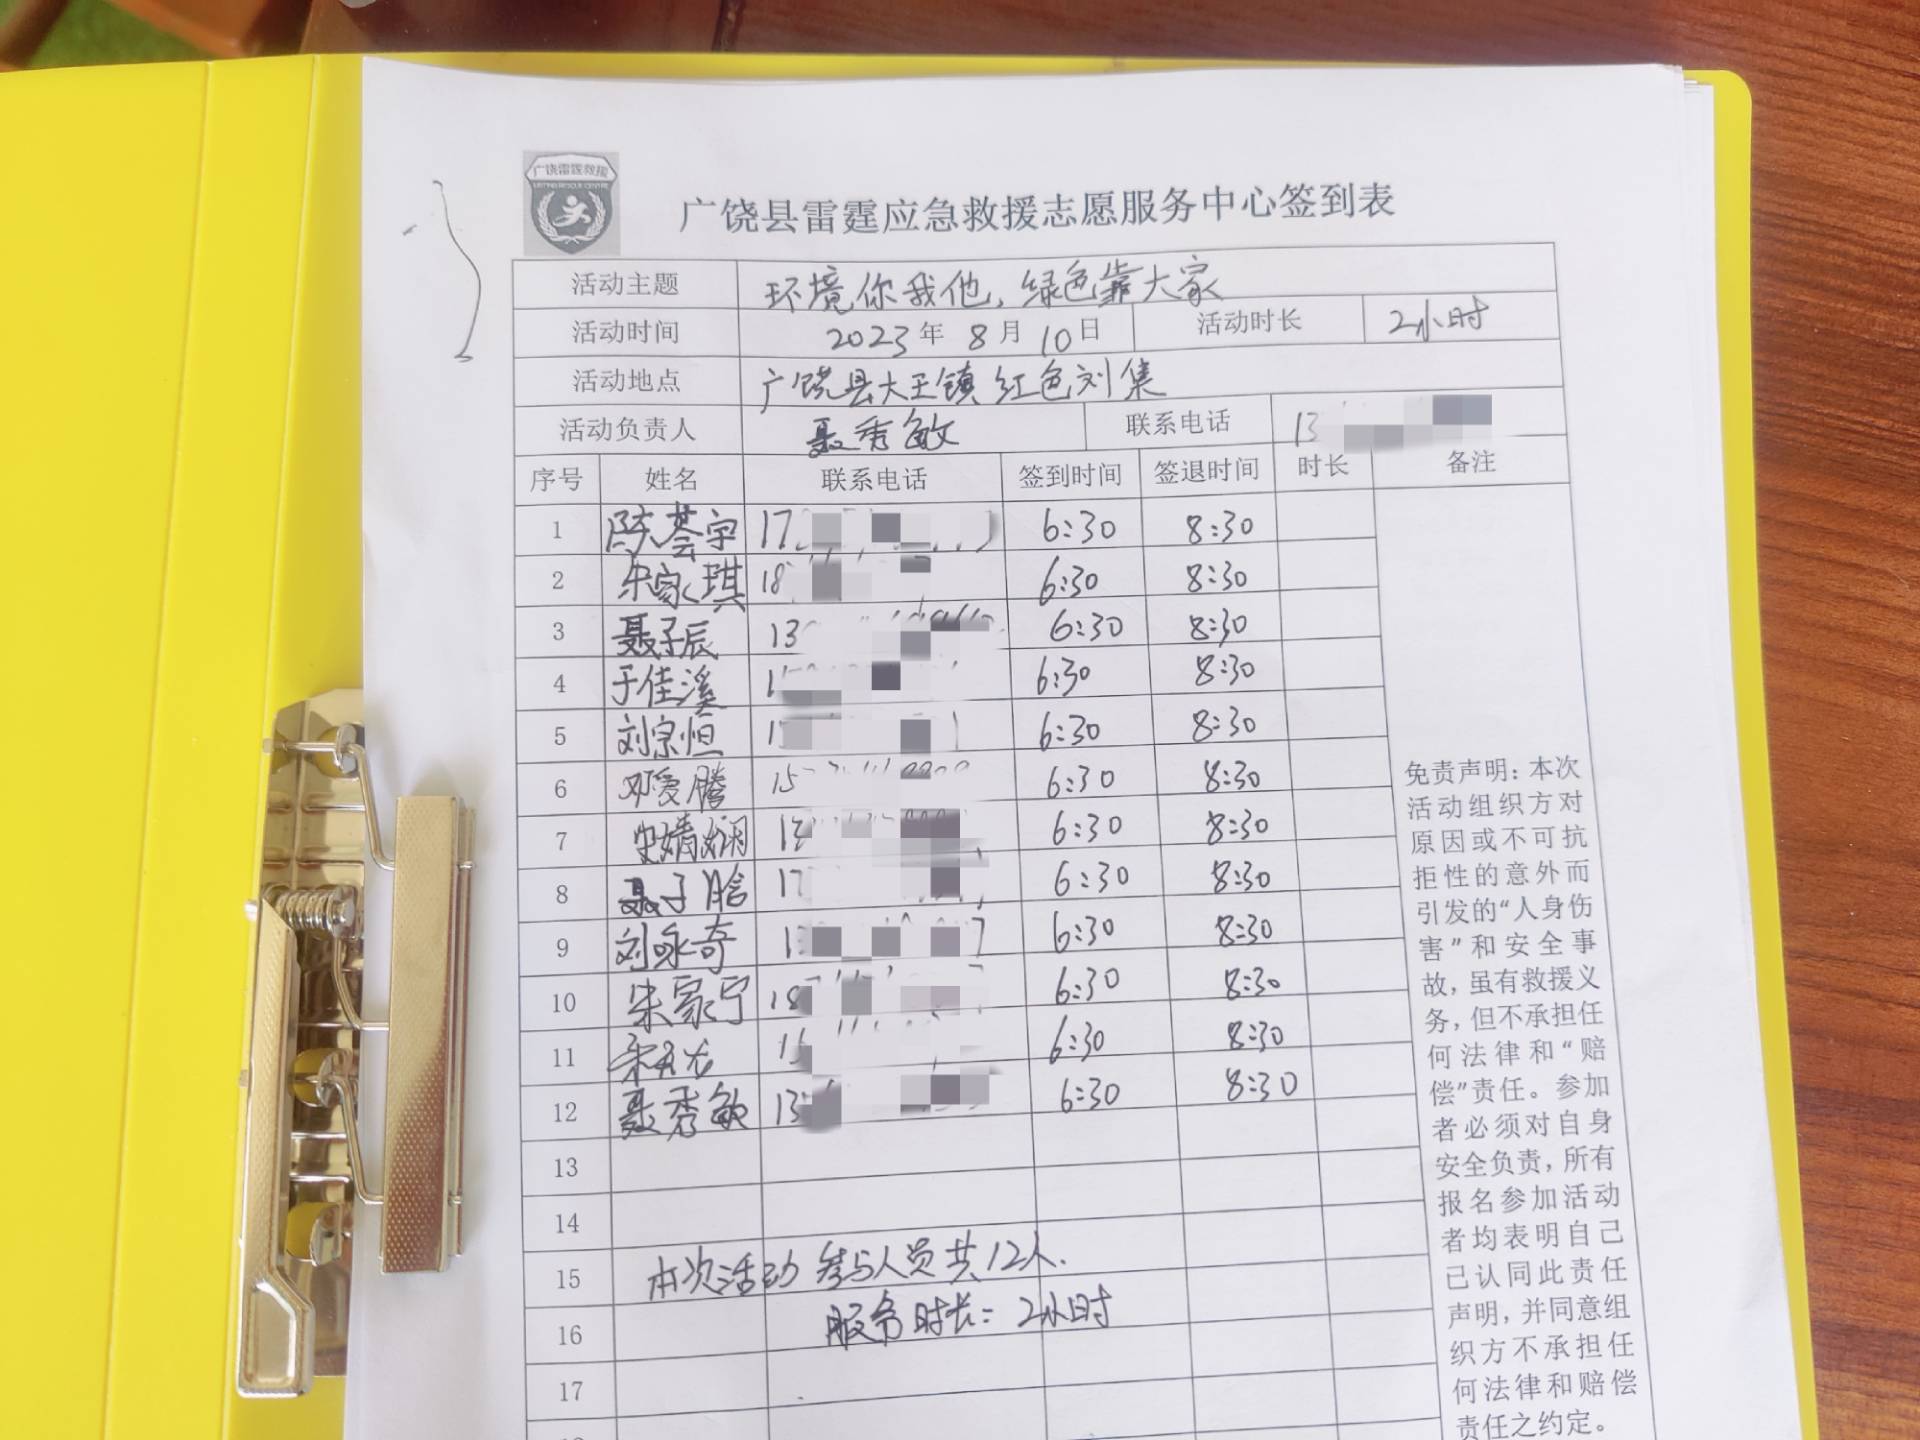 广饶雷霆救援
广饶县雷霆应急救援志愿服务中心签到表
活动主题 环境你我他，绿色靠大家
活动时间 2023年 8月 10日 活动时长 2小时
活动地点 广饶县大王镇 红色刘集
活动负责人 聂秀敏 联系电话 13
序号 姓名 联系电话 签到时间 签退时间 时长 备注
1 陈荟宇 17 6:30 8:30
2 朱家琪 18 6:30 8:30
3 聂子辰 13 6:30 8:30
4 于佳溪 1 6:30 8:30
5 刘宗恒 1 6:30 8:30
6 邓爱腾 15 6:30 8:30
7 史婧娴 13 6:30 8:30
8 聂子晗 17 6:30 8:30
9 刘咏奇 1 6:30 8:30
10 朱家宁 18 6:30 8:30
11 6:30 8:30
12 聂秀敏 13 6:30 8:30
13
14
15 本次活动 参与人员共12人.
16 服务时长: 2小时
17
免责声明：本次
活动组织方对
原因或不可抗
拒性的意外而
引发的“人身伤
害”和安全事
故，虽有救援义
务，但不承担任
何法律和“赔
偿”责任。参加
者必须对自身
安全负责，所有
报名参加活动
者均表明自己
已认同此责任
声明，并同意组
织方不承担任
何法律和赔偿
责任之约定。